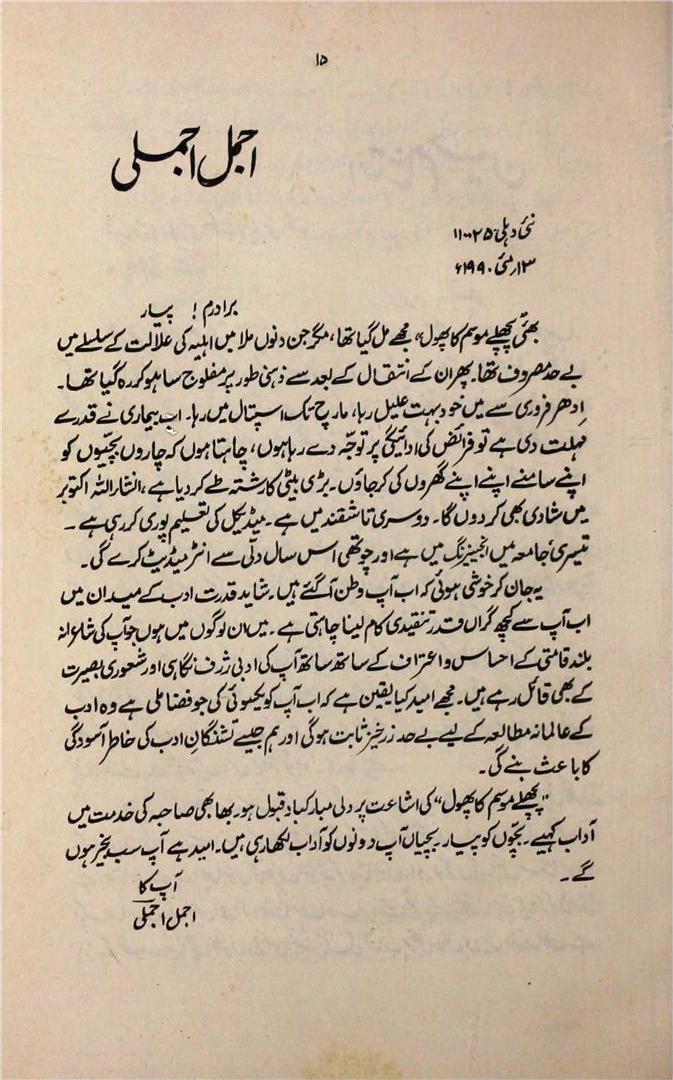 ۱۵
اجمل اجملی
نئی دہلی ۱۱۰۰۲۵
۱۳؍مئی ۱۹۹۰ء
برادرم! پیار
بھئی ”پچھلے موسم کا پھول“ مجھے مل گیا تھا، مگر جن دنوں ملا میں اہلیہ کی علالت کے سلسلے میں
بے حد مصروف تھا۔ پھر ان کے انتقال کے بعد سے ذہنی طور پر مفلوج سا ہو کر رہ گیا تھا۔
اِدھر فروری سے میں خود بہت علیل رہا، مارچ تک اسپتال میں رہا۔ اب بیماری نے قدرے
مہلت دی ہے تو فرائض کی ادائیگی پر توجّہ دے رہا ہوں، چاہتا ہوں کہ چاروں بچّیوں کو
اپنے سامنے اپنے اپنے گھروں کی کر جاؤں۔ بڑی بیٹی کا رشتہ طے کر دیا ہے، انشاءاللہ اکتوبر
میں شادی بھی کر دوں گا۔ دوسری تاشقند میں ہے۔ میڈیکل کی تعلیم پوری کر رہی ہے۔
تیسری جامعہ میں انجینیرنگ میں ہے اور چوتھی اس سال دلّی سے انٹرمیڈیٹ کرے گی۔
یہ جان کر خوشی ہوئی کہ اب آپ وطن آ گئے ہیں۔ شاید قدرت ادب کے میدان میں
اب آپ سے کچھ گراں قدر تنقیدی کام لینا چاہتی ہے۔ میں ان لوگوں میں ہوں جو آپ کی شاعرانہ
بلند قامتی کے احساس و اعتراف کے ساتھ ساتھ آپ کی ادبی ژرف نگاہی اور شعوری بصیرت
کے بھی قائل رہے ہیں۔ مجھے امید کیا یقین ہے کہ اب آپ کو یکسوئی کی جو فضا ملی ہے وہ ادب
کے عالمانہ مطالعہ کے لیے بے حد زرخیز ثابت ہوگی اور ہم جیسے تشنگانِ ادب کی خاطر آسودگی
کا باعث بنے گی۔
”پچھلے موسم کا پھول“ کی اشاعت پر دلی مبارکباد قبول ہو۔ بھابھی صاحبہ کی خدمت میں
آداب کہیے۔ بچّوں کو پیار۔ بچیاں آپ دونوں کو آداب لکھا رہی ہیں۔ امید ہے آپ سب بخیر ہوں
گے۔
آپ کا
اجمل اجملی